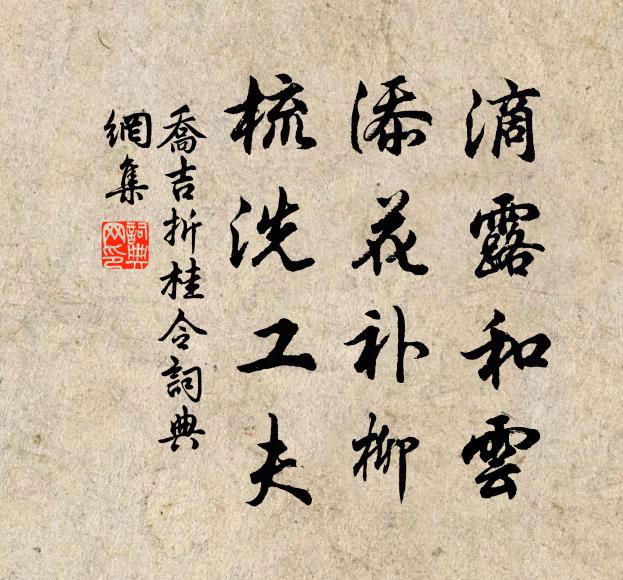 滴露和雲
添花补柳
梳洗工夫
喬吉折桂令詞典
網集
詞典
网印